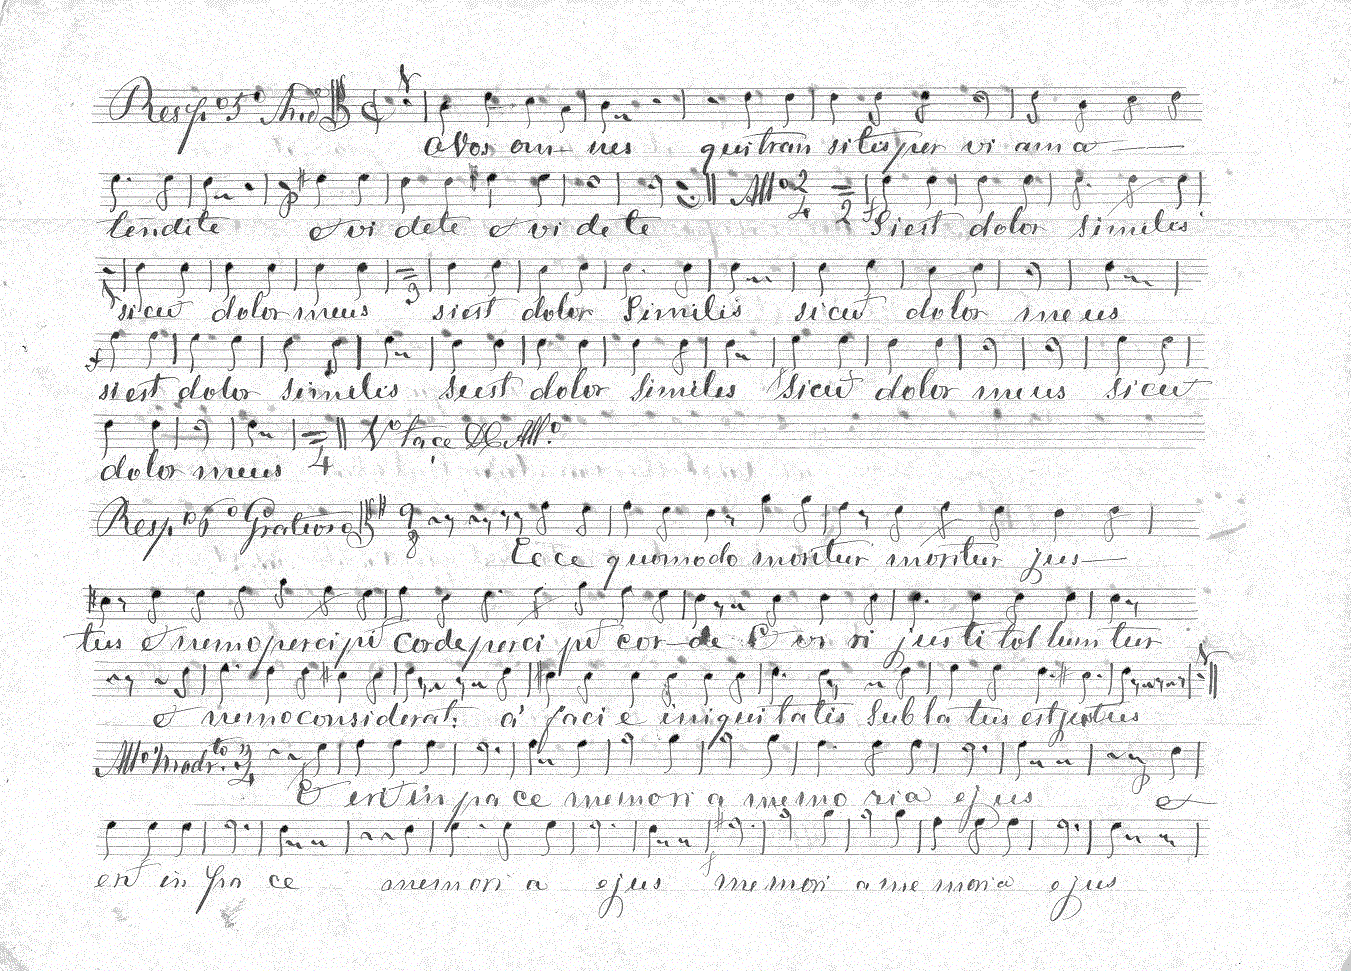 Resp.º 5º And.e
O Vos om nes qui tran sitis per vi am a
tendite et vi dete et vi de te All.º 2/4 2 Si est dolor similis
sicut dolor meus 3 si est dolor Similis sicut dolor meus
si est dolor similis si est dolor similis sicut dolor meus sicut
4 Vº tace DC All.º
dolor meus
Resp.º 6º Gratioso 9/8
Ecce quomodo moritur moritur jus
tus et nemo percipit Corde perci pit cor de Et vi ri justi tol lun tur
et nemo considerat; á faci e iniqui tatis Subla tus est justus
All.º Modr.to 3/4
Et erit in pa ce memori a memo ria ejus et
erit in pa ce memori a ejus memori a me moria ejus